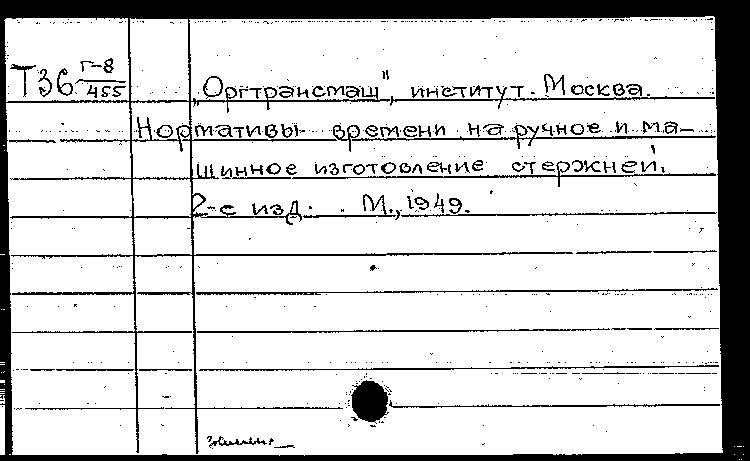 Т36 Г-8/455
„Оргтрансмаш", институт. Москва.
Нормативы времени на ручное и ма-
шинное изготовление стержней.
2-е изд. М., 1949.